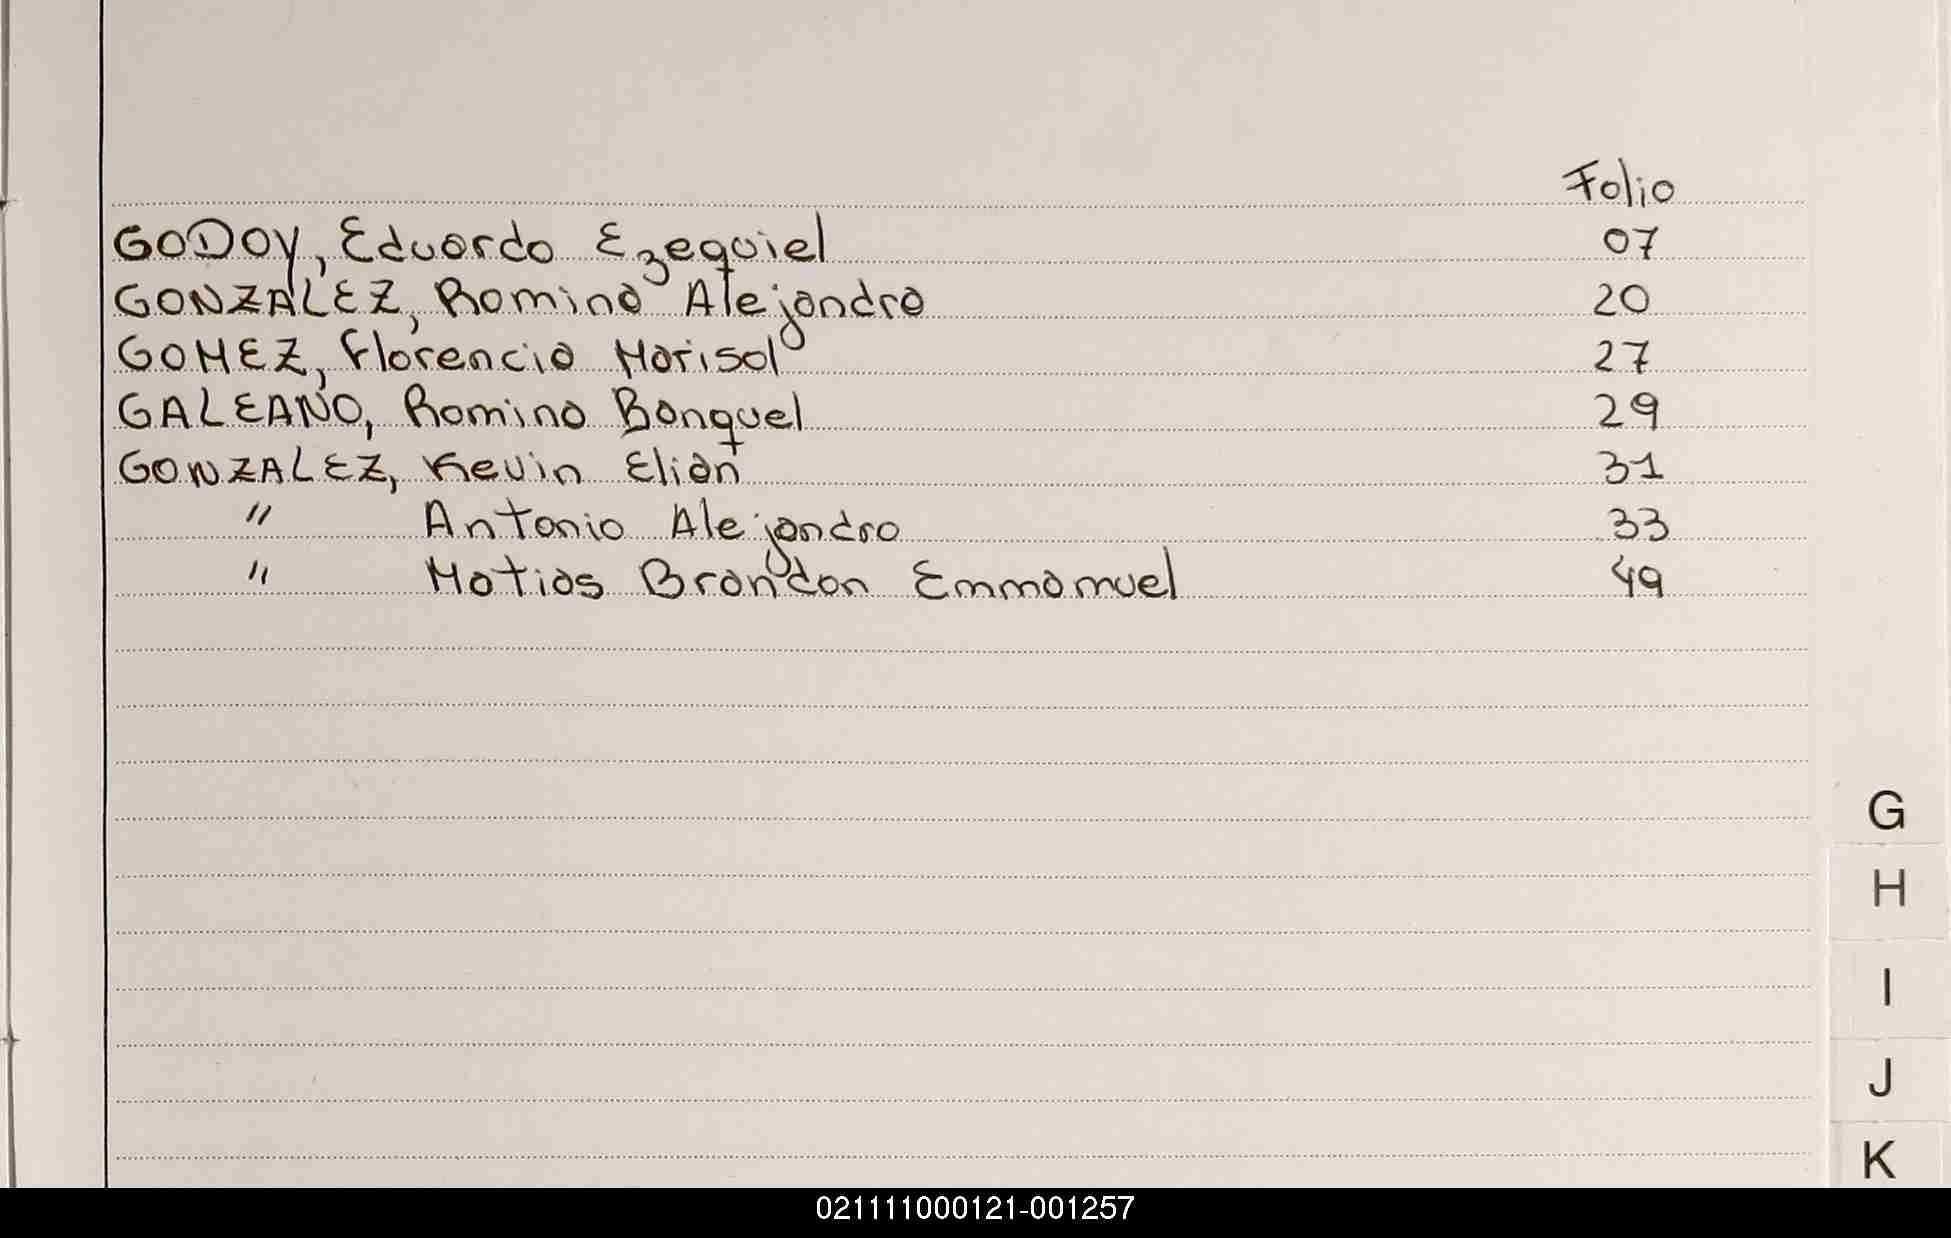 Folio
GODOY, Eduardo Ezequiel 07
GONZALEZ, Romina Alejandra 20
GOMEZ, Florencia Marisol 27
GALEANO, Romina Banquel 29
GONZALEZ, Kevin Elian 31
" Antonio Alejandro 33
" Matias Brandon Emmamuel 49
G
H
I
J
K
021111000121-001257